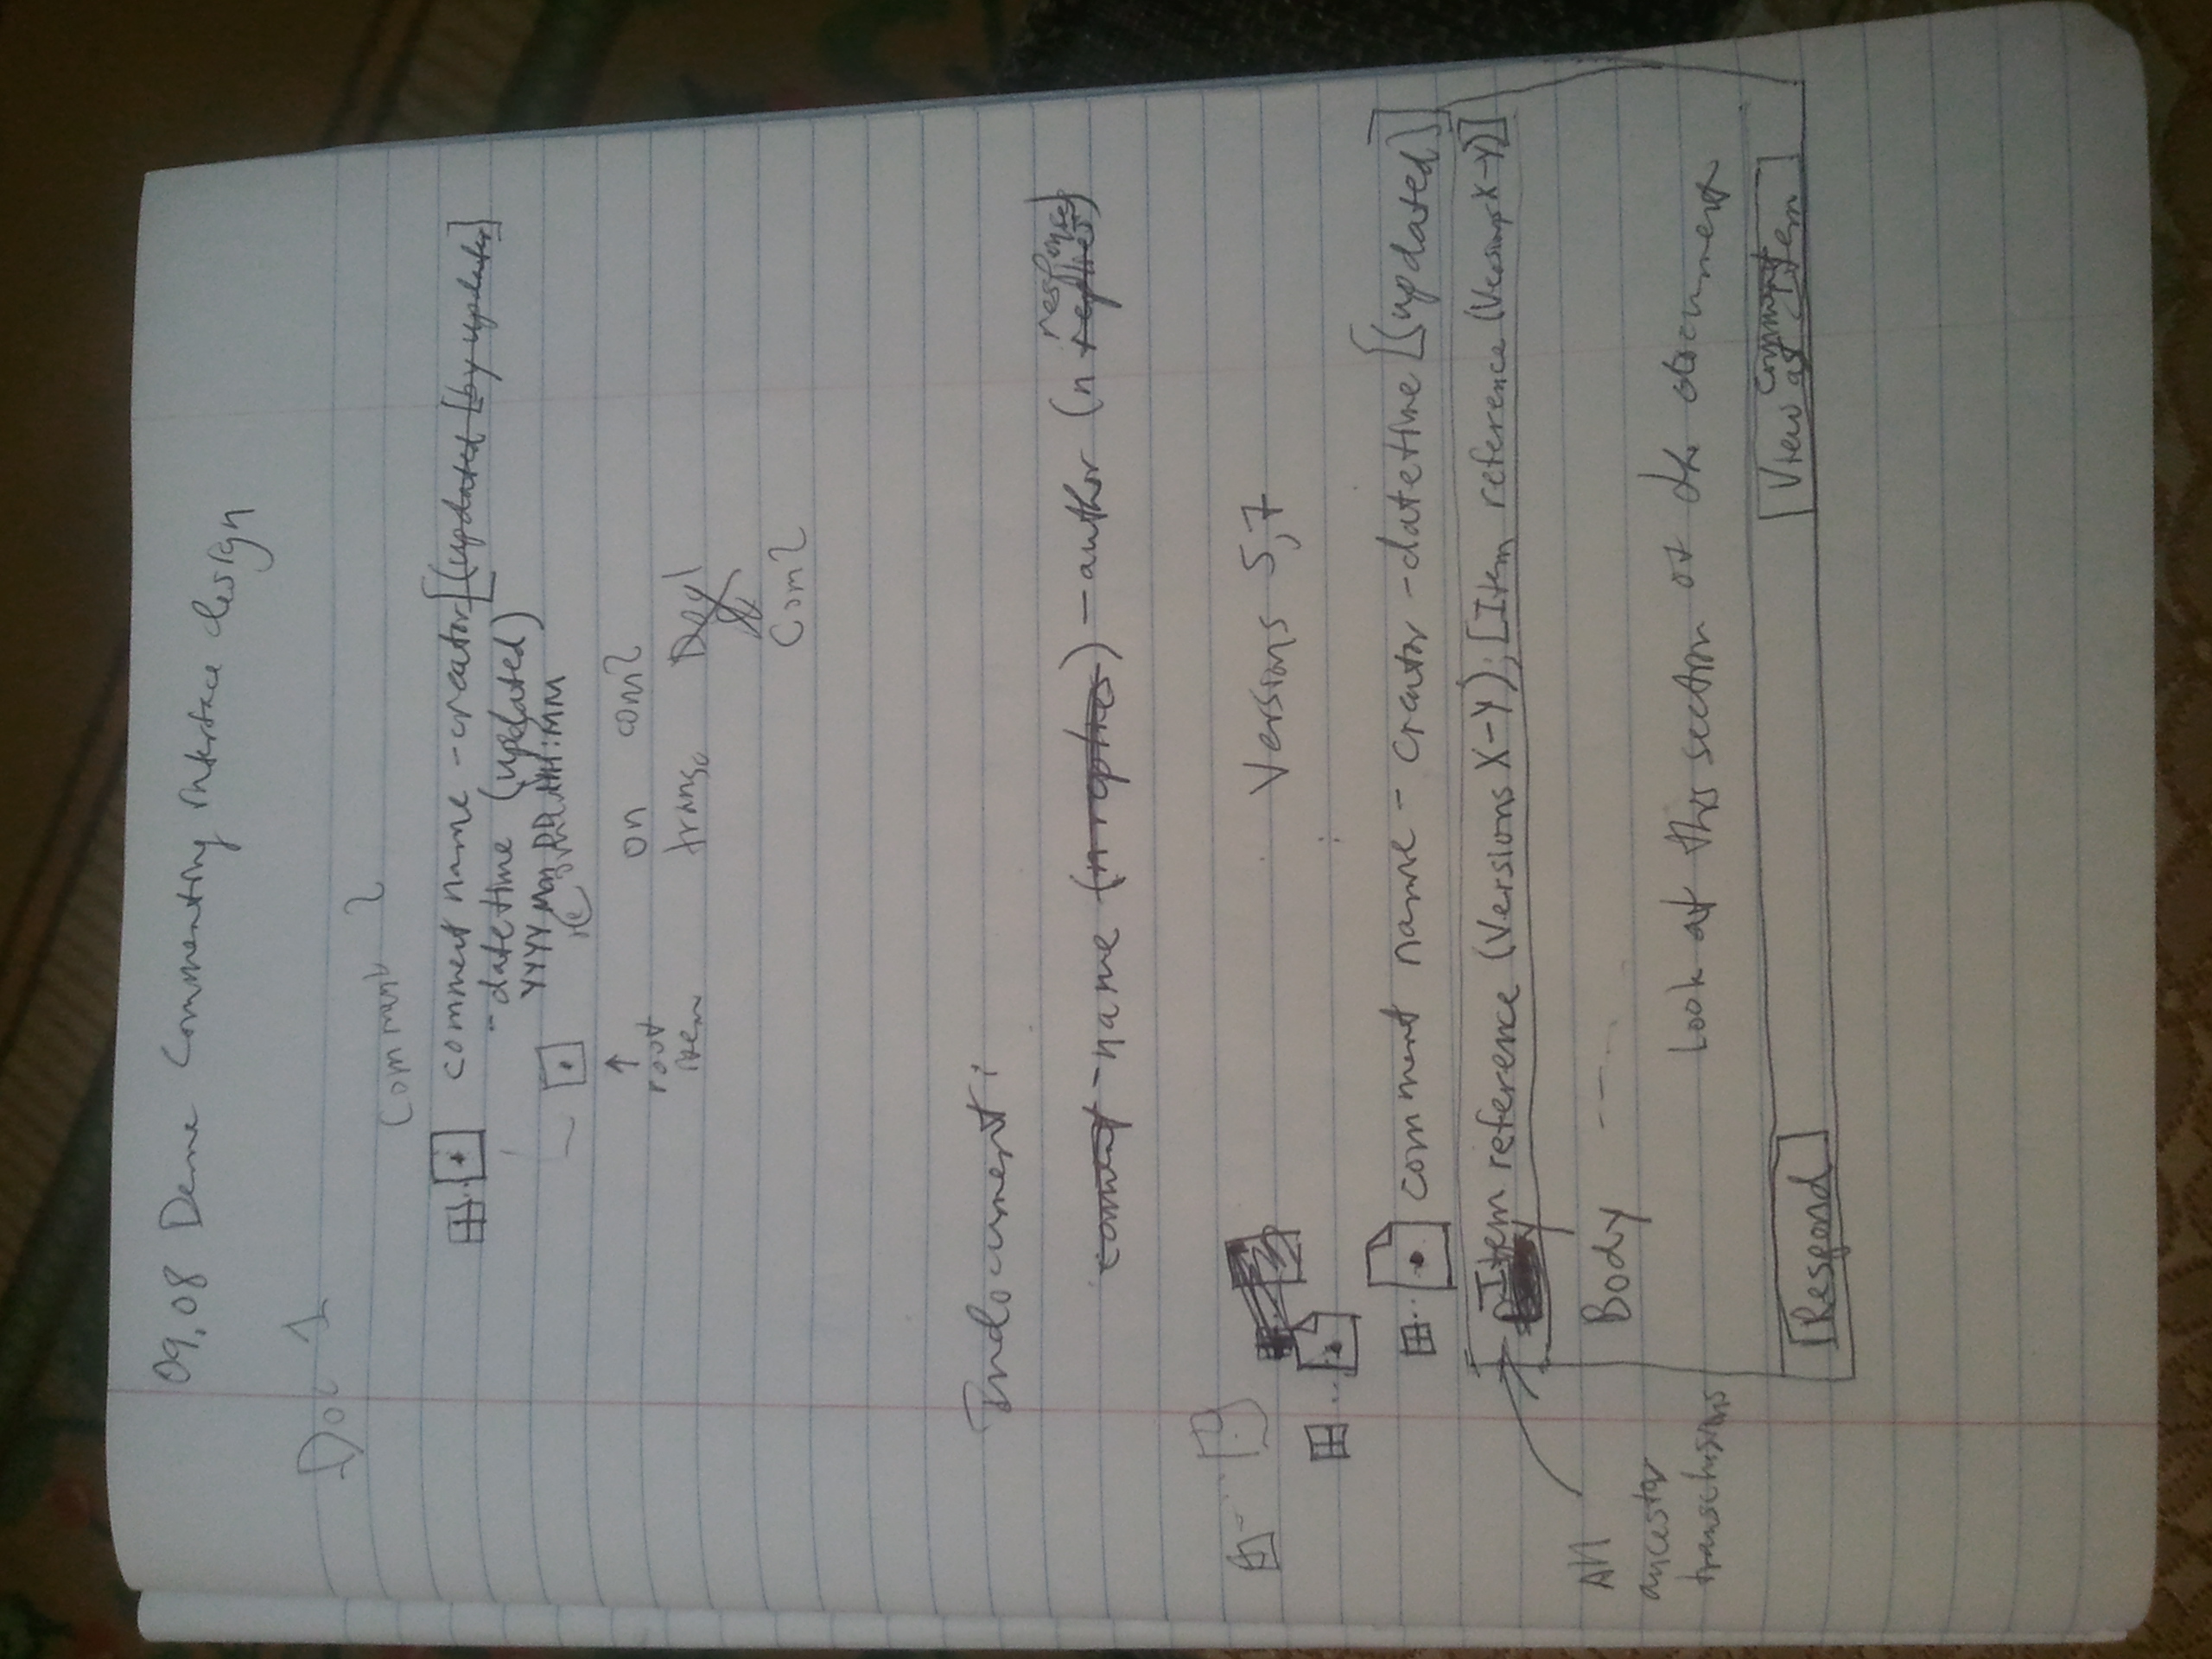 09.08 Deme Commenting interface design
Doc 1
Comment 2
comment name - creator [(updated [by updater]
- datetime (updated)
YYYY Mon DD HH:MM
on com2
root item
transc Doc 1
Com2
In document:
comment - name (n replies) - author (n replies responses)
Versions 5,7
comment name - creator - datetime [(updated)]
Item reference (Versions X-Y); [Item reference (Versions X-Y)]
Body
Look at this section of the document
Respond
View as comment item
All ancestor transclusions